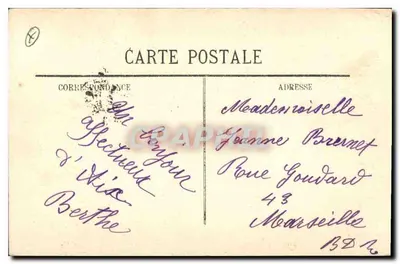 CARTE POSTALE
CORRESPONDANCE
ADRESSE
un bonjour
affectueux
d'Aix
Berthe
Mademoiselle
Jeanne
Rue Goudard
43
Marseille
BDR